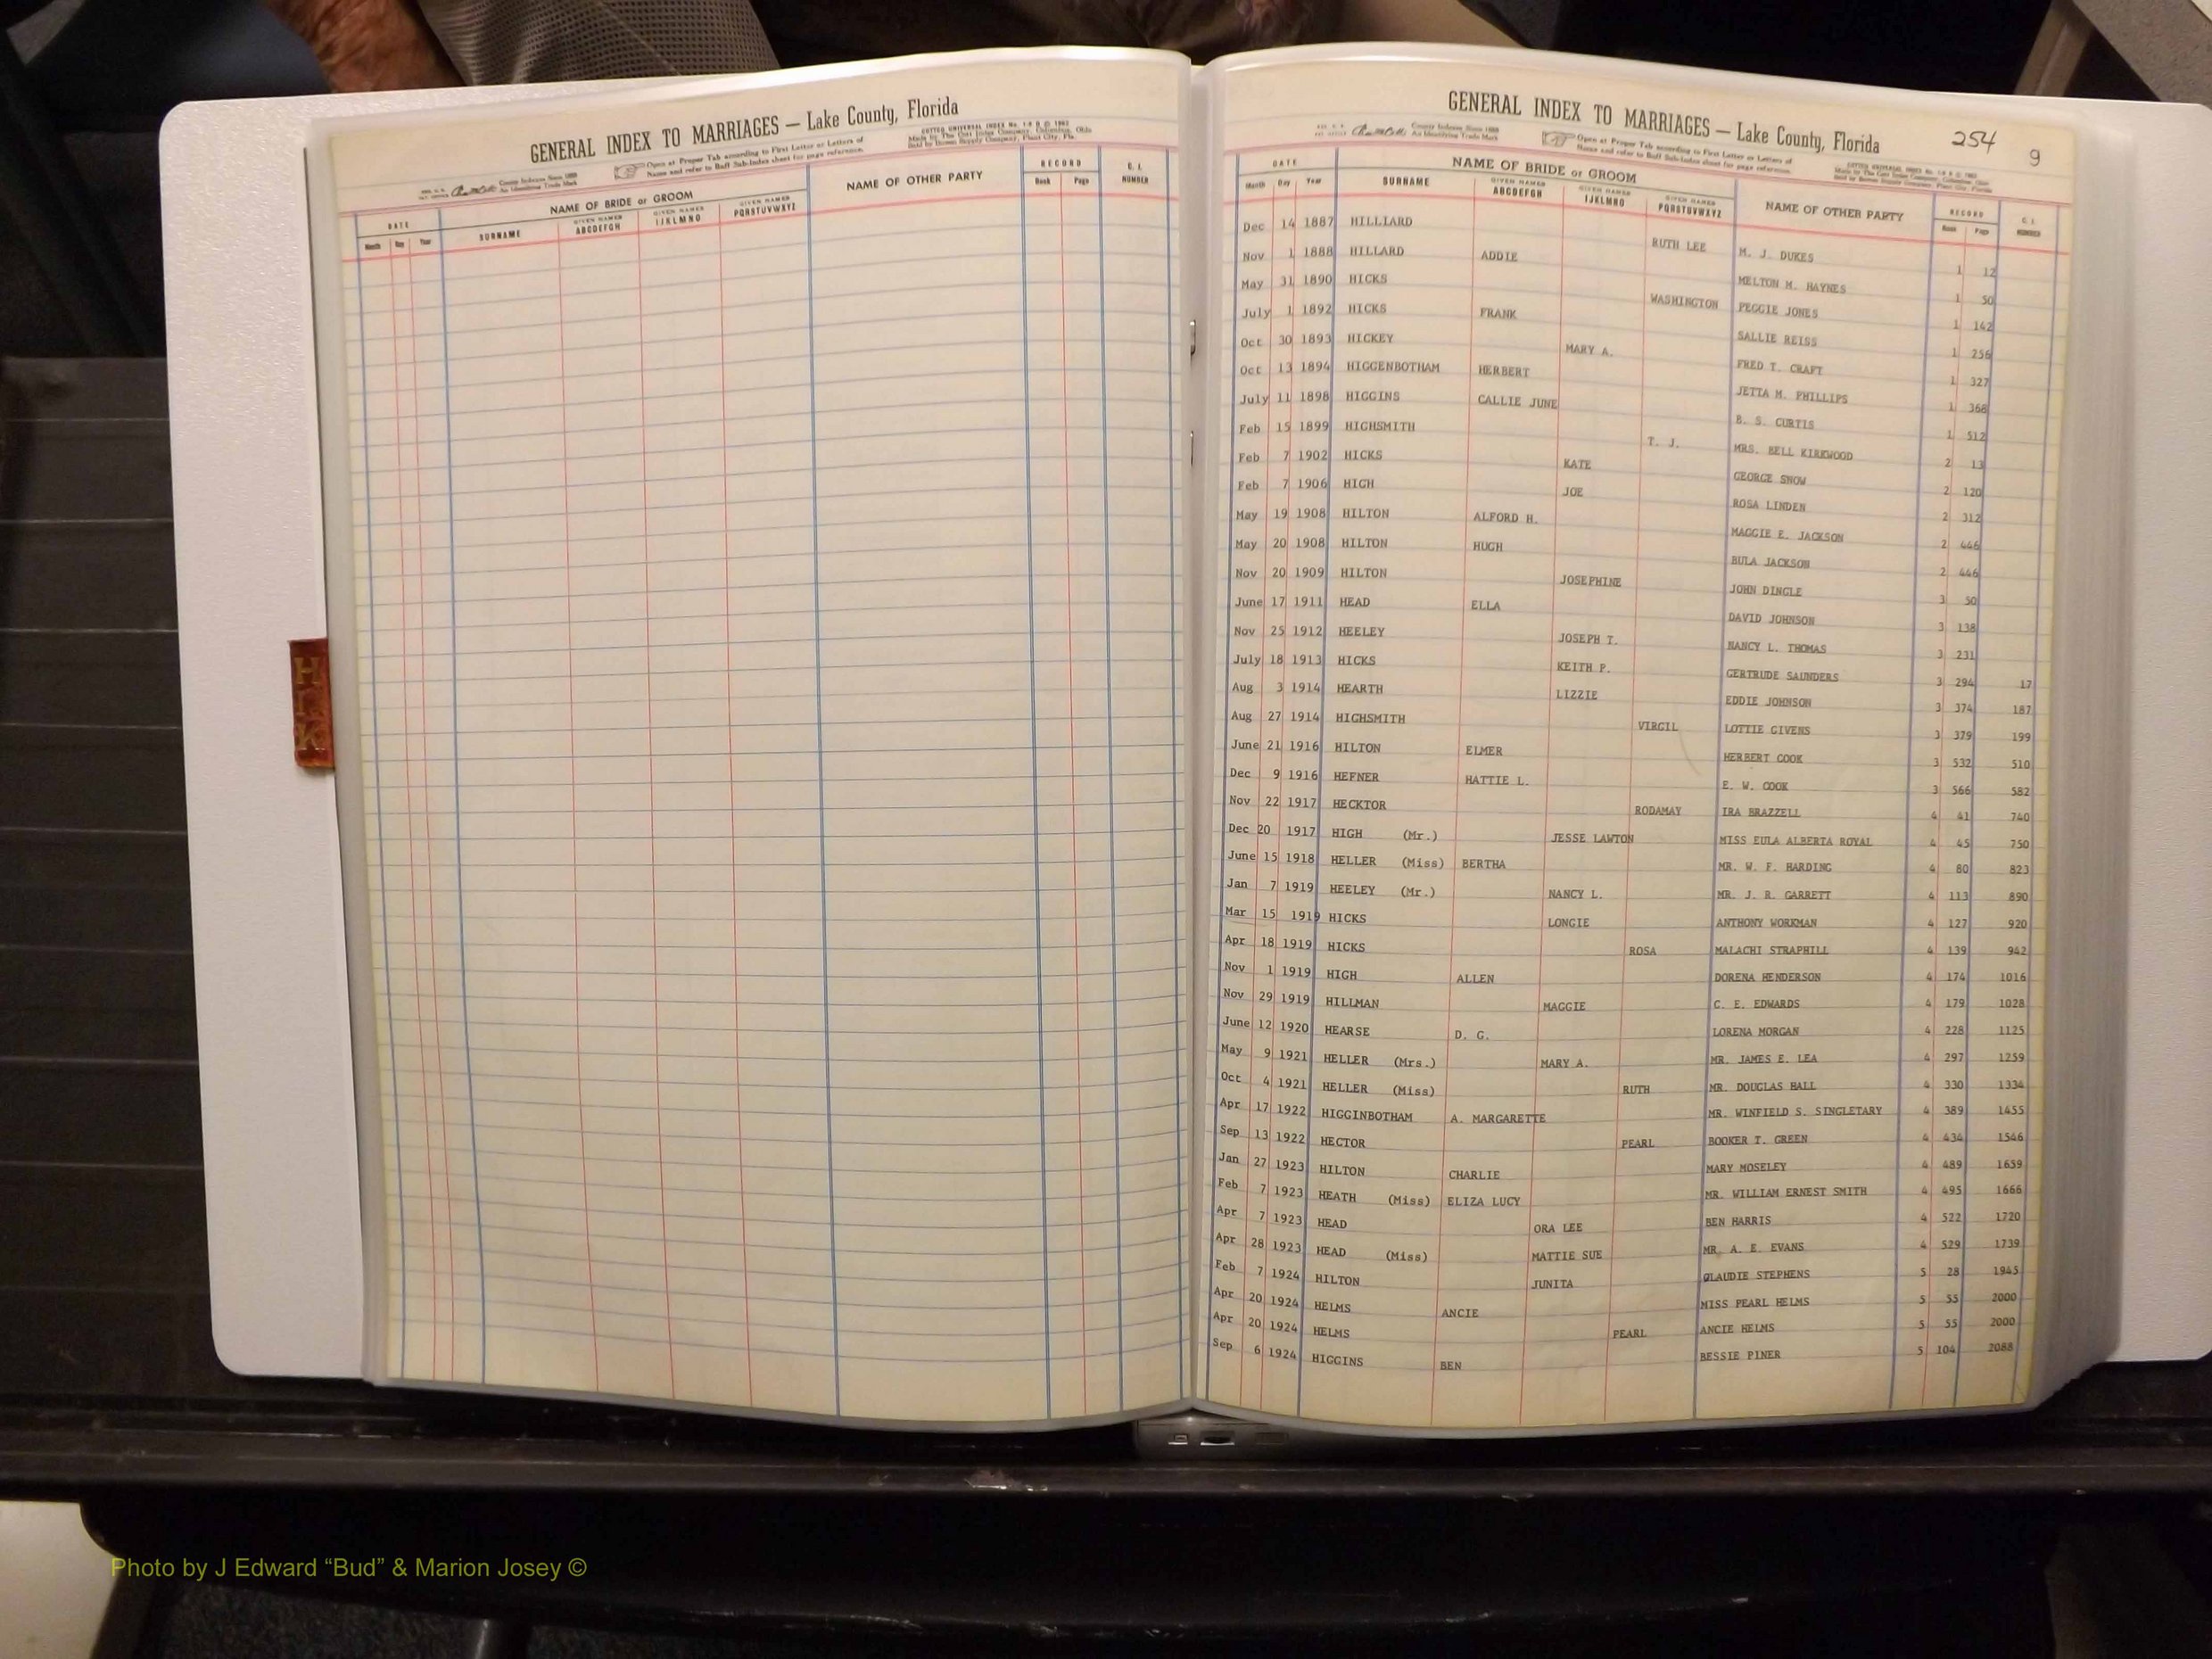 GENERAL INDEX TO MARRIAGES — Lake County, Florida
Open at Proper Tab according to First Letter or Letters of
Name and refer to Buff Sub-Index sheet for page reference.
DATE NAME OF BRIDE or GROOM NAME OF OTHER PARTY RECORD
Month Day Year SURNAME GIVEN NAMES ABCDEFGH GIVEN NAMES IJKLMNO GIVEN NAMES PQRSTUVWXYZ Book Page NUMBER
H
K
GENERAL INDEX TO MARRIAGES — Lake County, Florida
254 9
Open at Proper Tab according to First Letter or Letters of
Name and refer to Buff Sub-Index sheet for page reference.
DATE NAME OF BRIDE or GROOM NAME OF OTHER PARTY RECORD
Month Day Year SURNAME GIVEN NAMES ABCDEFGH GIVEN NAMES IJKLMNO GIVEN NAMES PQRSTUVWXYZ Book Page NUMBER
Dec 14 1887 HILLIARD RUTH LEE M. J. DUKES 1 12
Nov 1 1888 HILLARD ADDIE MELTON M. HAYNES 1 50
May 31 1890 HICKS WASHINGTON PEGGIE JONES 1 142
July 1 1892 HICKS FRANK SALLIE REISS 1 256
Oct 30 1893 HICKEY MARY A. FRED T. CRAFT 1 327
Oct 13 1894 HIGGENBOTHAM HERBERT JETTA M. PHILLIPS 1 368
July 11 1898 HIGGINS CALLIE JUNE B. S. CURTIS 1 512
Feb 15 1899 HIGHSMITH T. J. MRS. BELL KIRKWOOD 2 13
Feb 7 1902 HICKS KATE GEORGE SNOW 2 120
Feb 7 1906 HIGH JOE ROSA LINDEN 2 312
May 19 1908 HILTON ALFORD H. MAGGIE E. JACKSON 2 446
May 20 1908 HILTON HUGH BULA JACKSON 2 446
Nov 20 1909 HILTON JOSEPHINE JOHN DINGLE 3 50
June 17 1911 HEAD ELLA DAVID JOHNSON 3 138
Nov 25 1912 HEELEY JOSEPH T. NANCY L. THOMAS 3 231
July 18 1913 HICKS KEITH P. GERTRUDE SAUNDERS 3 294 17
Aug 3 1914 HEARTH LIZZIE EDDIE JOHNSON 3 374 187
Aug 27 1914 HIGHSMITH VIRGIL LOTTIE GIVENS 3 379 199
June 21 1916 HILTON ELMER HERBERT COOK 3 532 510
Dec 9 1916 HEFNER HATTIE L. E. W. COOK 3 566 582
Nov 22 1917 HECKTOR RODAMAY IRA BRAZZELL 4 41 740
Dec 20 1917 HIGH (Mr.) JESSE LAWTON MISS EULA ALBERTA ROYAL 4 45 750
June 15 1918 HELLER (Miss) BERTHA MR. W. F. HARDING 4 80 823
Jan 7 1919 HEELEY (Mr.) NANCY L. MR. J. R. GARRETT 4 113 890
Mar 15 1919 HICKS LONGIE ANTHONY WORKMAN 4 127 920
Apr 18 1919 HICKS ROSA MALACHI STRAPHILL 4 139 942
Nov 1 1919 HIGH ALLEN DORENA HENDERSON 4 174 1016
Nov 29 1919 HILLMAN MAGGIE C. E. EDWARDS 4 179 1028
June 12 1920 HEARSE D. G. LORENA MORGAN 4 228 1125
May 9 1921 HELLER (Mrs.) MARY A. MR. JAMES E. LEA 4 297 1259
Oct 4 1921 HELLER (Miss) RUTH MR. DOUGLAS BALL 4 330 1334
Apr 17 1922 HIGGINBOTHAM A. MARGARETTE MR. WINFIELD S. SINGLETARY 4 389 1455
Sep 13 1922 HECTOR PEARL BOOKER T. GREEN 4 434 1546
Jan 27 1923 HILTON CHARLIE MARY MOSELEY 4 489 1659
Feb 7 1923 HEATH (Miss) ELIZA LUCY MR. WILLIAM ERNEST SMITH 4 495 1666
Apr 7 1923 HEAD ORA LEE BEN HARRIS 4 522 1720
Apr 28 1923 HEAD (Miss) MATTIE SUE MR. A. E. EVANS 4 529 1739
Feb 7 1924 HILTON JUNITA CLAUDIE STEPHENS 5 28 1945
Apr 20 1924 HELMS ANCIE MISS PEARL HELMS 5 55 2000
Apr 20 1924 HELMS PEARL ANCIE HELMS 5 55 2000
Sep 6 1924 HIGGINS BEN BESSIE PINER 5 104 2088
Photo by J Edward “Bud” & Marion Josey ©